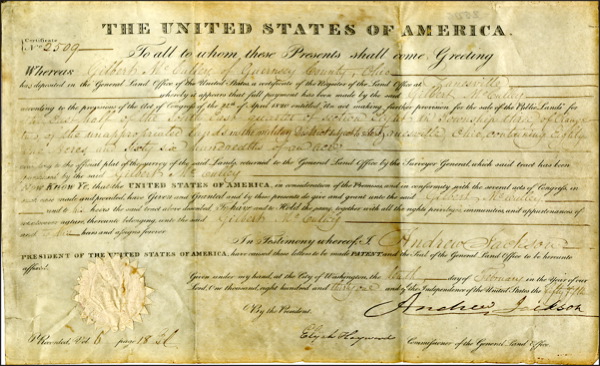 THE UNITED STATES OF AMERICA.
Certificate
No. 2509
To all to whom these Presents shall come Greeting
Whereas Gilbert McCulley of Guernsey County, Ohio
has deposited in the General Land Office of the United States, a certificate of the Register of the Land Office at Zanesville
whereby it appears that full payment has been made by the said Gilbert McCulley
according to the provisions of the Act of Congress of the 24th of April 1820 entitled "An act making further provision for the sale of the Public Lands" for
the East half of the South East quarter of section Eight in Township three of Range
of the unappropriated lands in the military District subject to sale at Zanesville Ohio, containing Eighty
one acres and sixty six hundredths of an acre
according to the official plat of the survey of the said Lands, returned to the General Land Office by the Surveyor General, which said tract has been
purchased by the said Gilbert McCulley
Now Know Ye, that the UNITED STATES OF AMERICA, in consideration of the Premises and in conformity with the several acts of Congress, in
such case made and provided, have Given and Granted and by these presents do give and grant unto the said Gilbert McCulley
and to his heirs the said tract above described To have and to Hold the same, together with all the rights, privileges, immunities, and appurtenances of
whatsoever nature, thereunto belonging, unto the said Gilbert McCulley
and to his heirs and assigns forever
In Testimony whereof I Andrew Jackson
PRESIDENT OF THE UNITED STATES OF AMERICA, have caused these letters to be made PATENT and the Seal of the General Land Office to be hereunto
affixed.
Given under my hand, at the City of Washington, the day of February in the Year of our
Lord, One thousand eight hundred and thirty one and of the Independence of the United States the fifty fifth
By the President. Andrew Jackson
Elijah Hayward Commissioner of the General Land Office
Recorded, Vol. 6 page 18